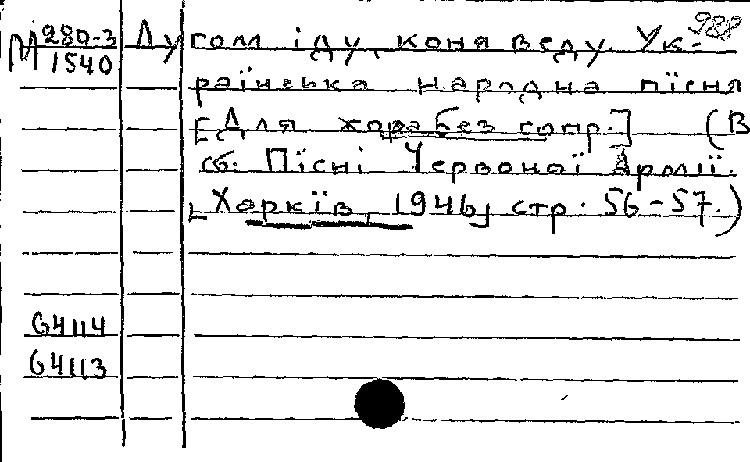 988
М 280-3
1540
Лугом іду, коня веду. Ук-
раїнська народна пісня
[Для хора без супр.] (В
сб. Пісні Червоної Армії.
[Харків, 1946] стр. 56-57.)
64114
64113